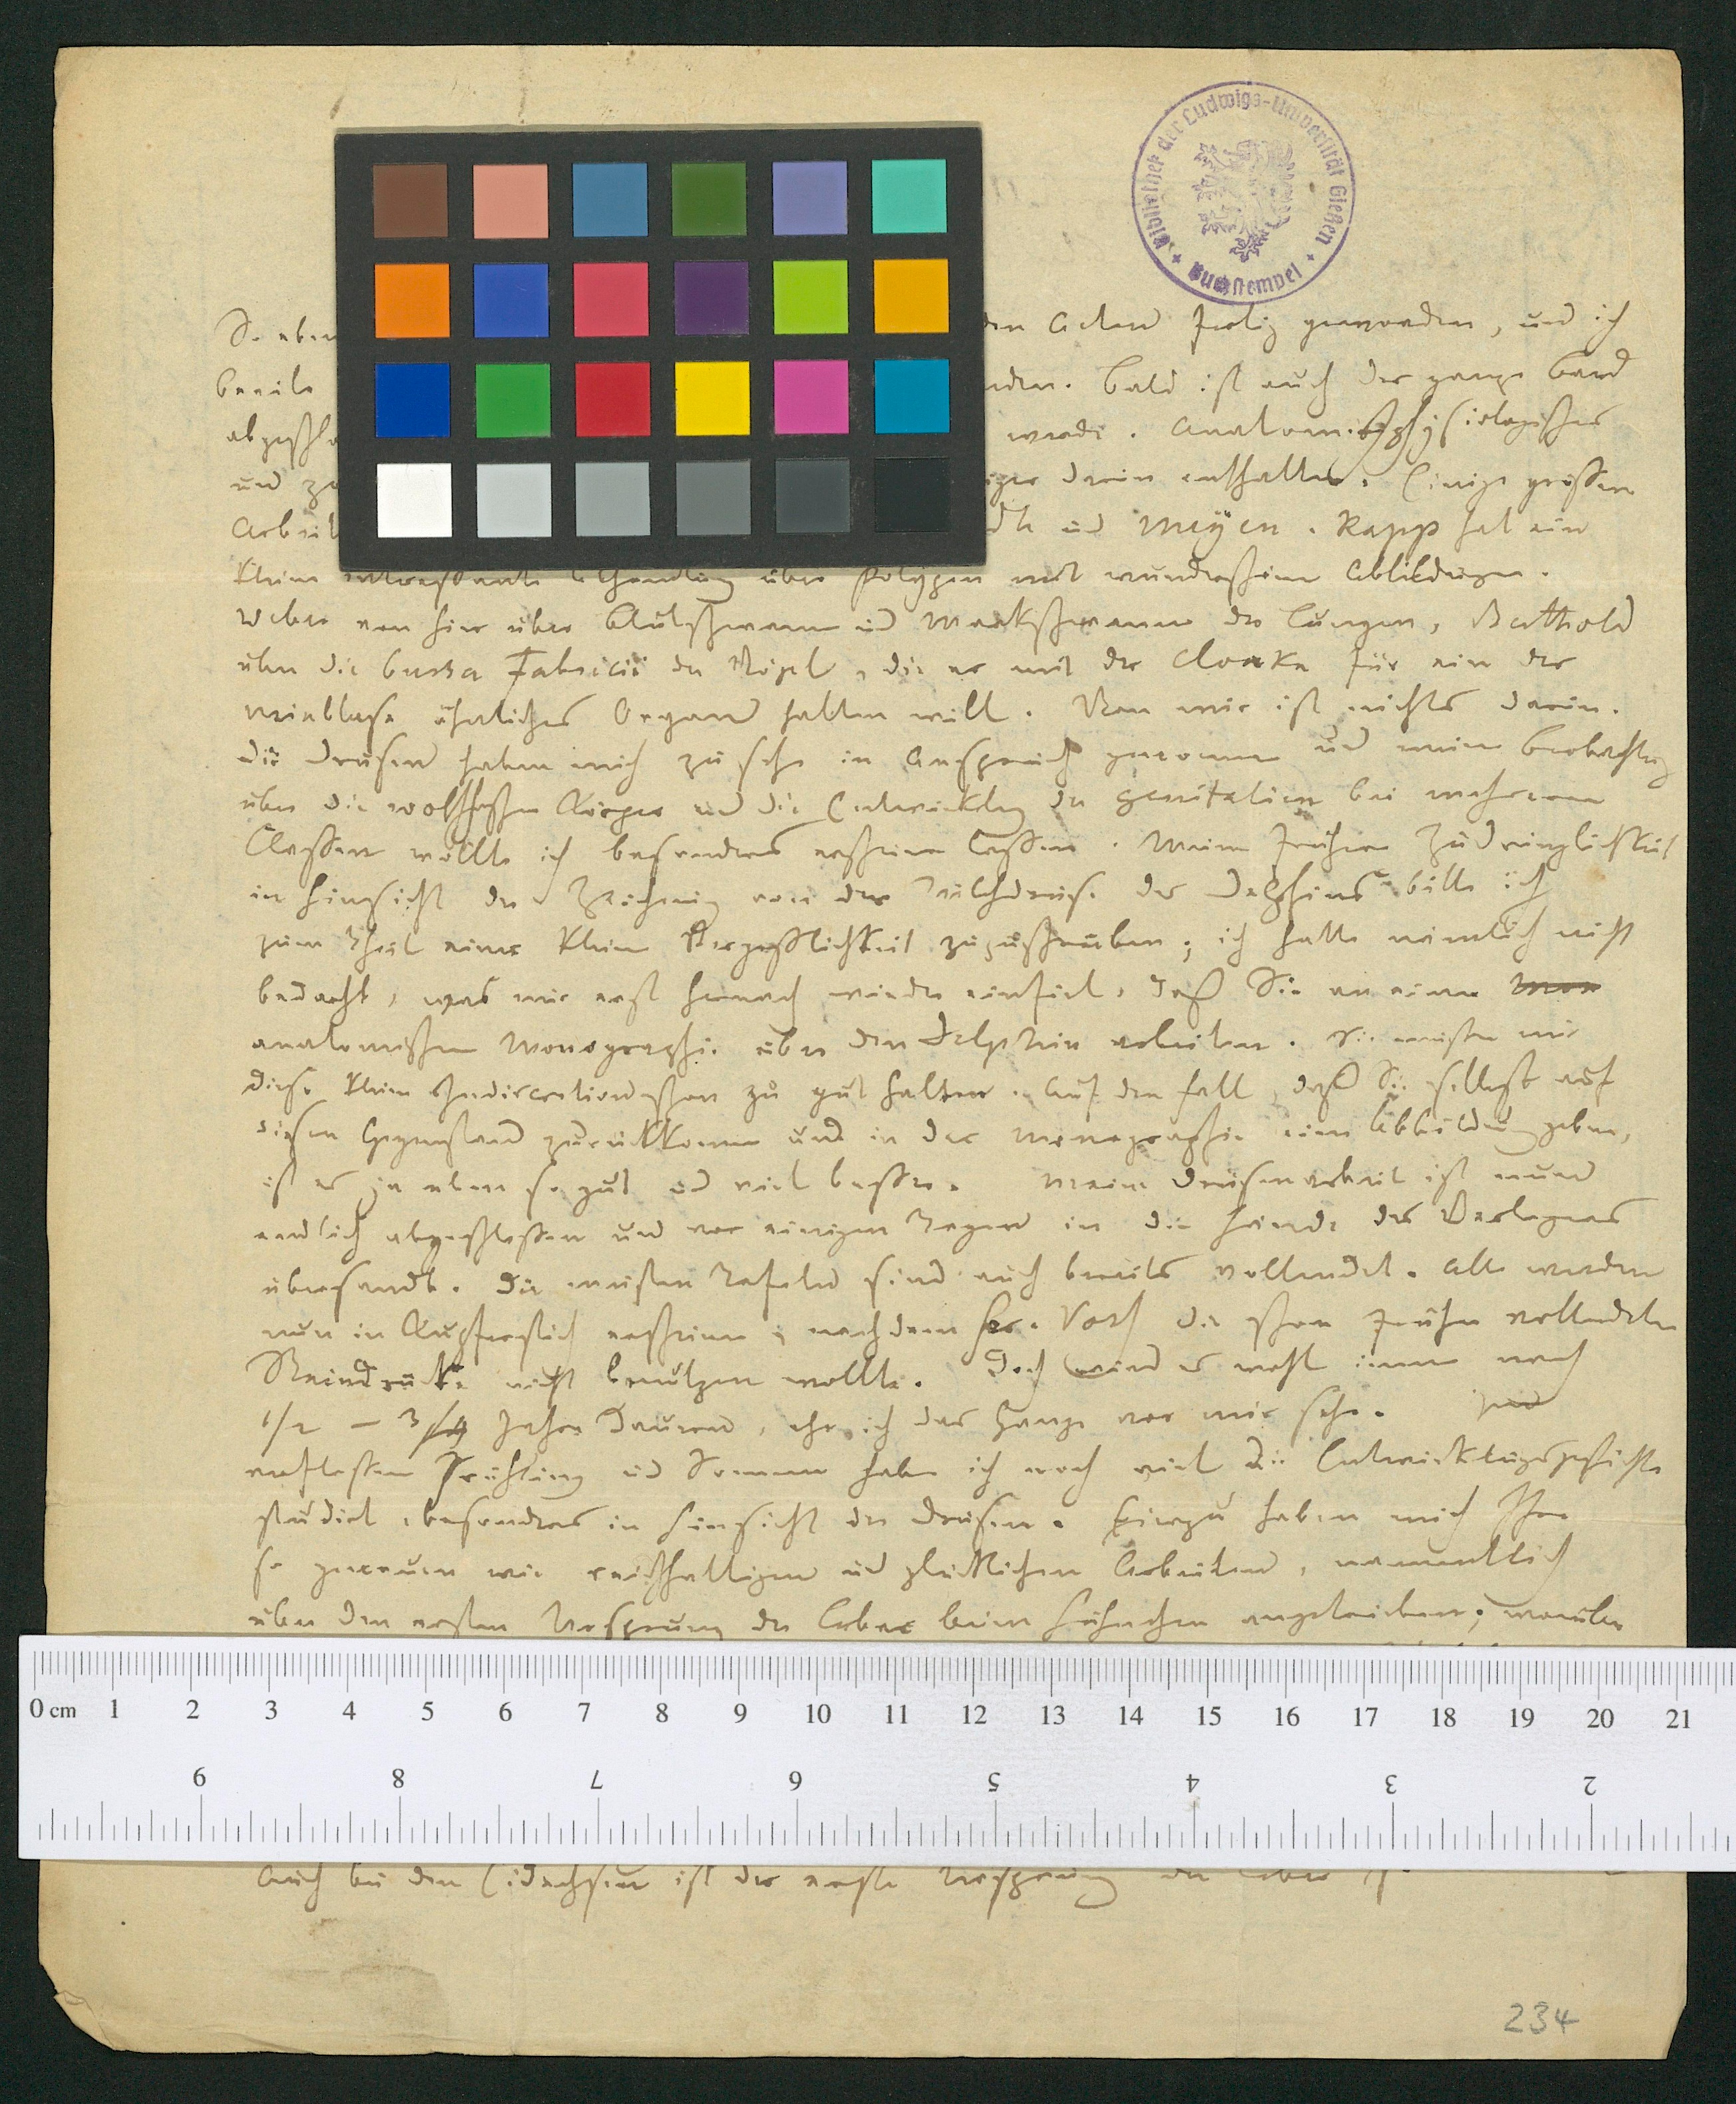 Bibliothek der Ludwigs-Universität Gießen
Buchstempel
So eben den Acten fertig geworden, und ich
bereile nden. Bald ist auch der ganze Band
abgeschlo werde. Anatomischphysiologisches
und zo iges darin enthalten. Einige grössere
Arbeit dt und Meyen. Rapp hat ein
kleine interessante Abhandlung über Polypen mit wunderschönen Abbildungen.
Weber von hier über Blutschwamm und Markschwamm der Lungen, Berthold
über die bursa Fabricii der Vögel, die er mit der Cloake für ein der
Urinblase ähnliches Organ halten will. Von mir ist nichts darin.
Die Drüsen haben mich zu sehr in Anspruch genommen und meine Beobachtung
über die wolffschen Körper und die Entwicklung der Genitalien bei mehreren
Classen wollte ich besonders erscheinen lassen. Meine frühere Zudringlichkeit
in Hinsicht der Zeichnung von der Milchdrüse des Delphins bitte ich
zum Theil einer kleinen Vergesslichkeit zuzuschreiben; ich hatte nämlich nicht
bedacht, was mir erst hernach wieder einfiel, daß Sie an einer Mon
anatomischen Monographie über den Delphin arbeiten. Sie müssen mir
diese kleine Indiscretion schon zu gut halten. Auf den Fall, daß Sie selbst auf
diesen Gegenstand zurückkommen und in der Monographie eine Abbildung geben,
ist es ja eben so gut und viel besser. Meine Drüsenarbeit ist nun
endlich abgeschlossen und vor einigen Tagen in die Hände des Verlegers
übersandt. Die meisten Tafeln sind auch bereits vollendet. Alle werden
nun in Kupferstich erscheinen, nachdem Hr. Voß die schon früher vollendeten
Steindrücke nicht benutzen wollte. Doch wird es wohl immer noch
1/2 – 3/4 Jahre dauern, ehe ich das Ganze vor mir sehe.
verflossenen Frühling und Sommer habe ich noch viel die Entwicklungsgeschichte
studirt, besonders in Hinsicht der Drüsen. Hierzu haben mich Ihre
so genauen wie reichhaltigen und glücklichen Arbeiten, namentlich
über den ersten Ursprung der Leber beim Hühnchen angetrieben; worüber
0 cm 1 2 3 4 5 6 7 8 9 10 11 12 13 14 15 16 17 18 19 20 21
9 8 7 6 5 4 3 2
Auch bei den Eidechsen ist der erste Ursprung der Leber
234